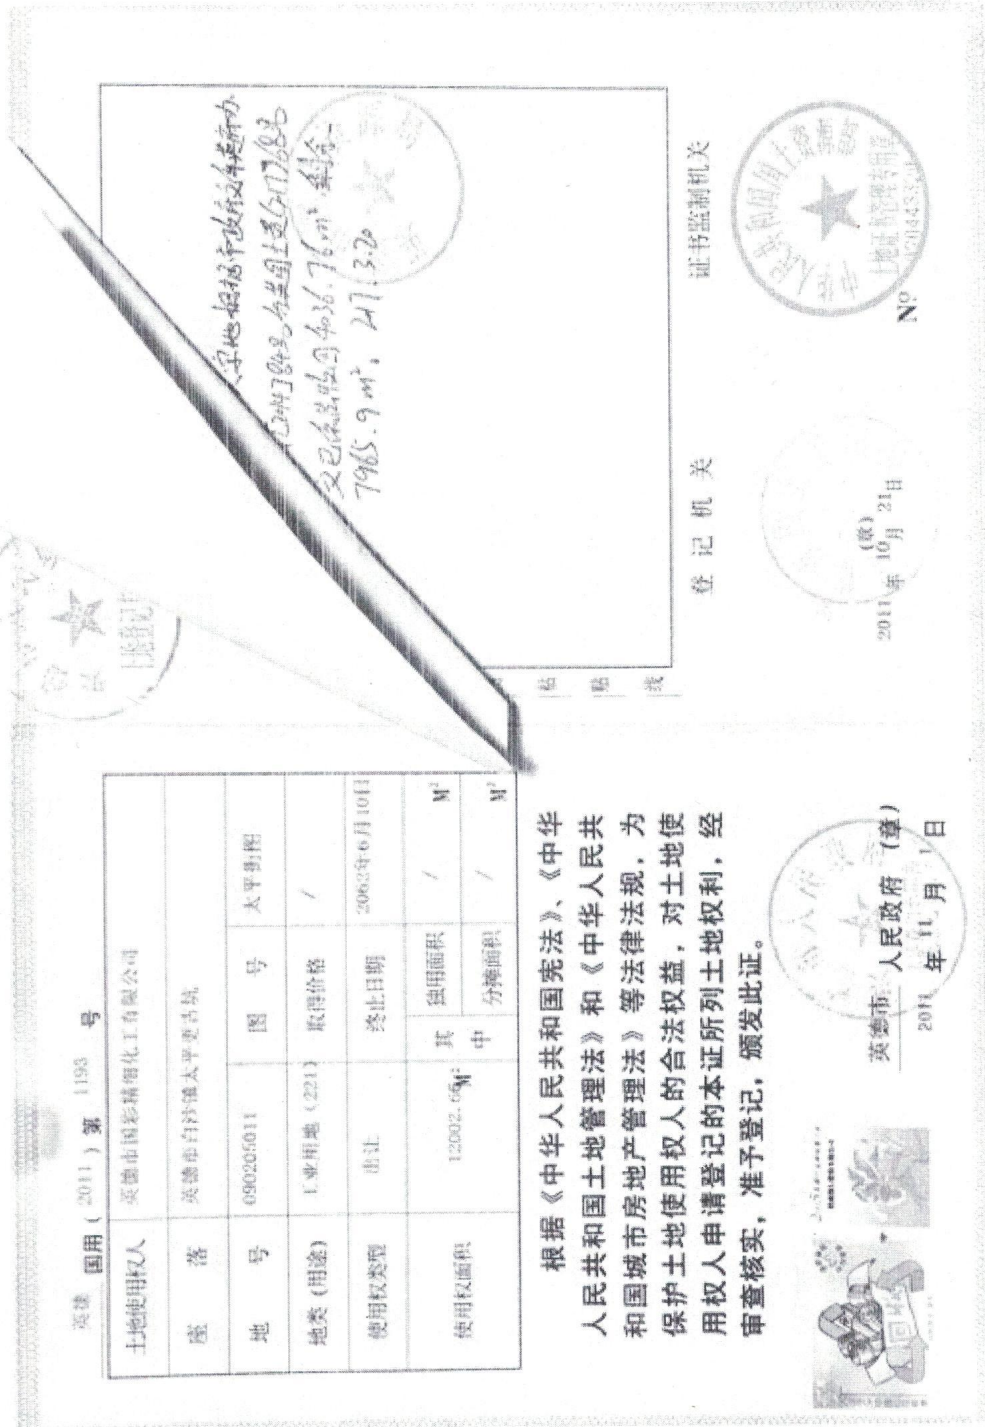 英德 国用( 2011 ) 第 1193 号
土地使用权人 英德市国彩精细化工有限公司
座 落 英德市白沙镇太平更古坑
地 号 090205011 图 号 太平街图
地类 (用途) 工业用地 (221) 取得价格 /
使用权类型 出让 终止日期 2062年6月10日
使用权面积 12002.66 M² 其中 独用面积 / M²
分摊面积 / M²
根据《中华人民共和国宪法》、《中华
人民共和国土地管理法》和《中华人民共
和国城市房地产管理法》等法律法规，为
保护土地使用权人的合法权益，对土地使
用权人申请登记的本证所列土地权利，经
审查核实，准予登记，颁发此证。
英德市 人民政府 (章)
2011 年 11 月 1 日
土地登记
7965.9m². 217.3.20
粘
贴
线
登 记 机 关
(章)
2011 年 10 月 21 日
证书监制机关
中华人民共和国国土资源部
土地证书管理专用章
Nº